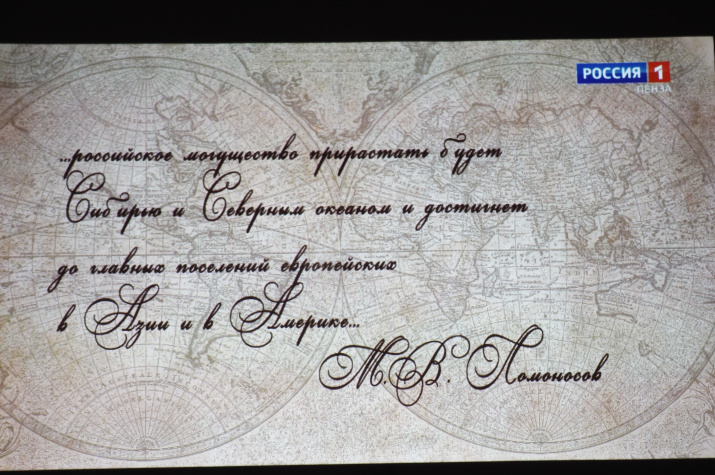 РОССИЯ 1
ПЕНЗА
...российское могущество прирастать будет
Сибирью и Северным океаном и достигнет
до главных поселений европейских
в Азии и в Америке...
М.В. Ломоносов